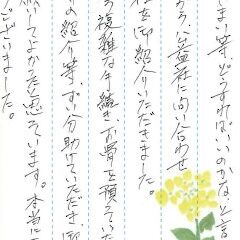 しまい等、どうすればいいのかなと言
から公益社に問い合わせ
社を御紹介いただきました。
複雑な手続き、お骨を預ってい
の紹介等、ずい分助けていただき
してよかったと思っています。本当に
ございました。